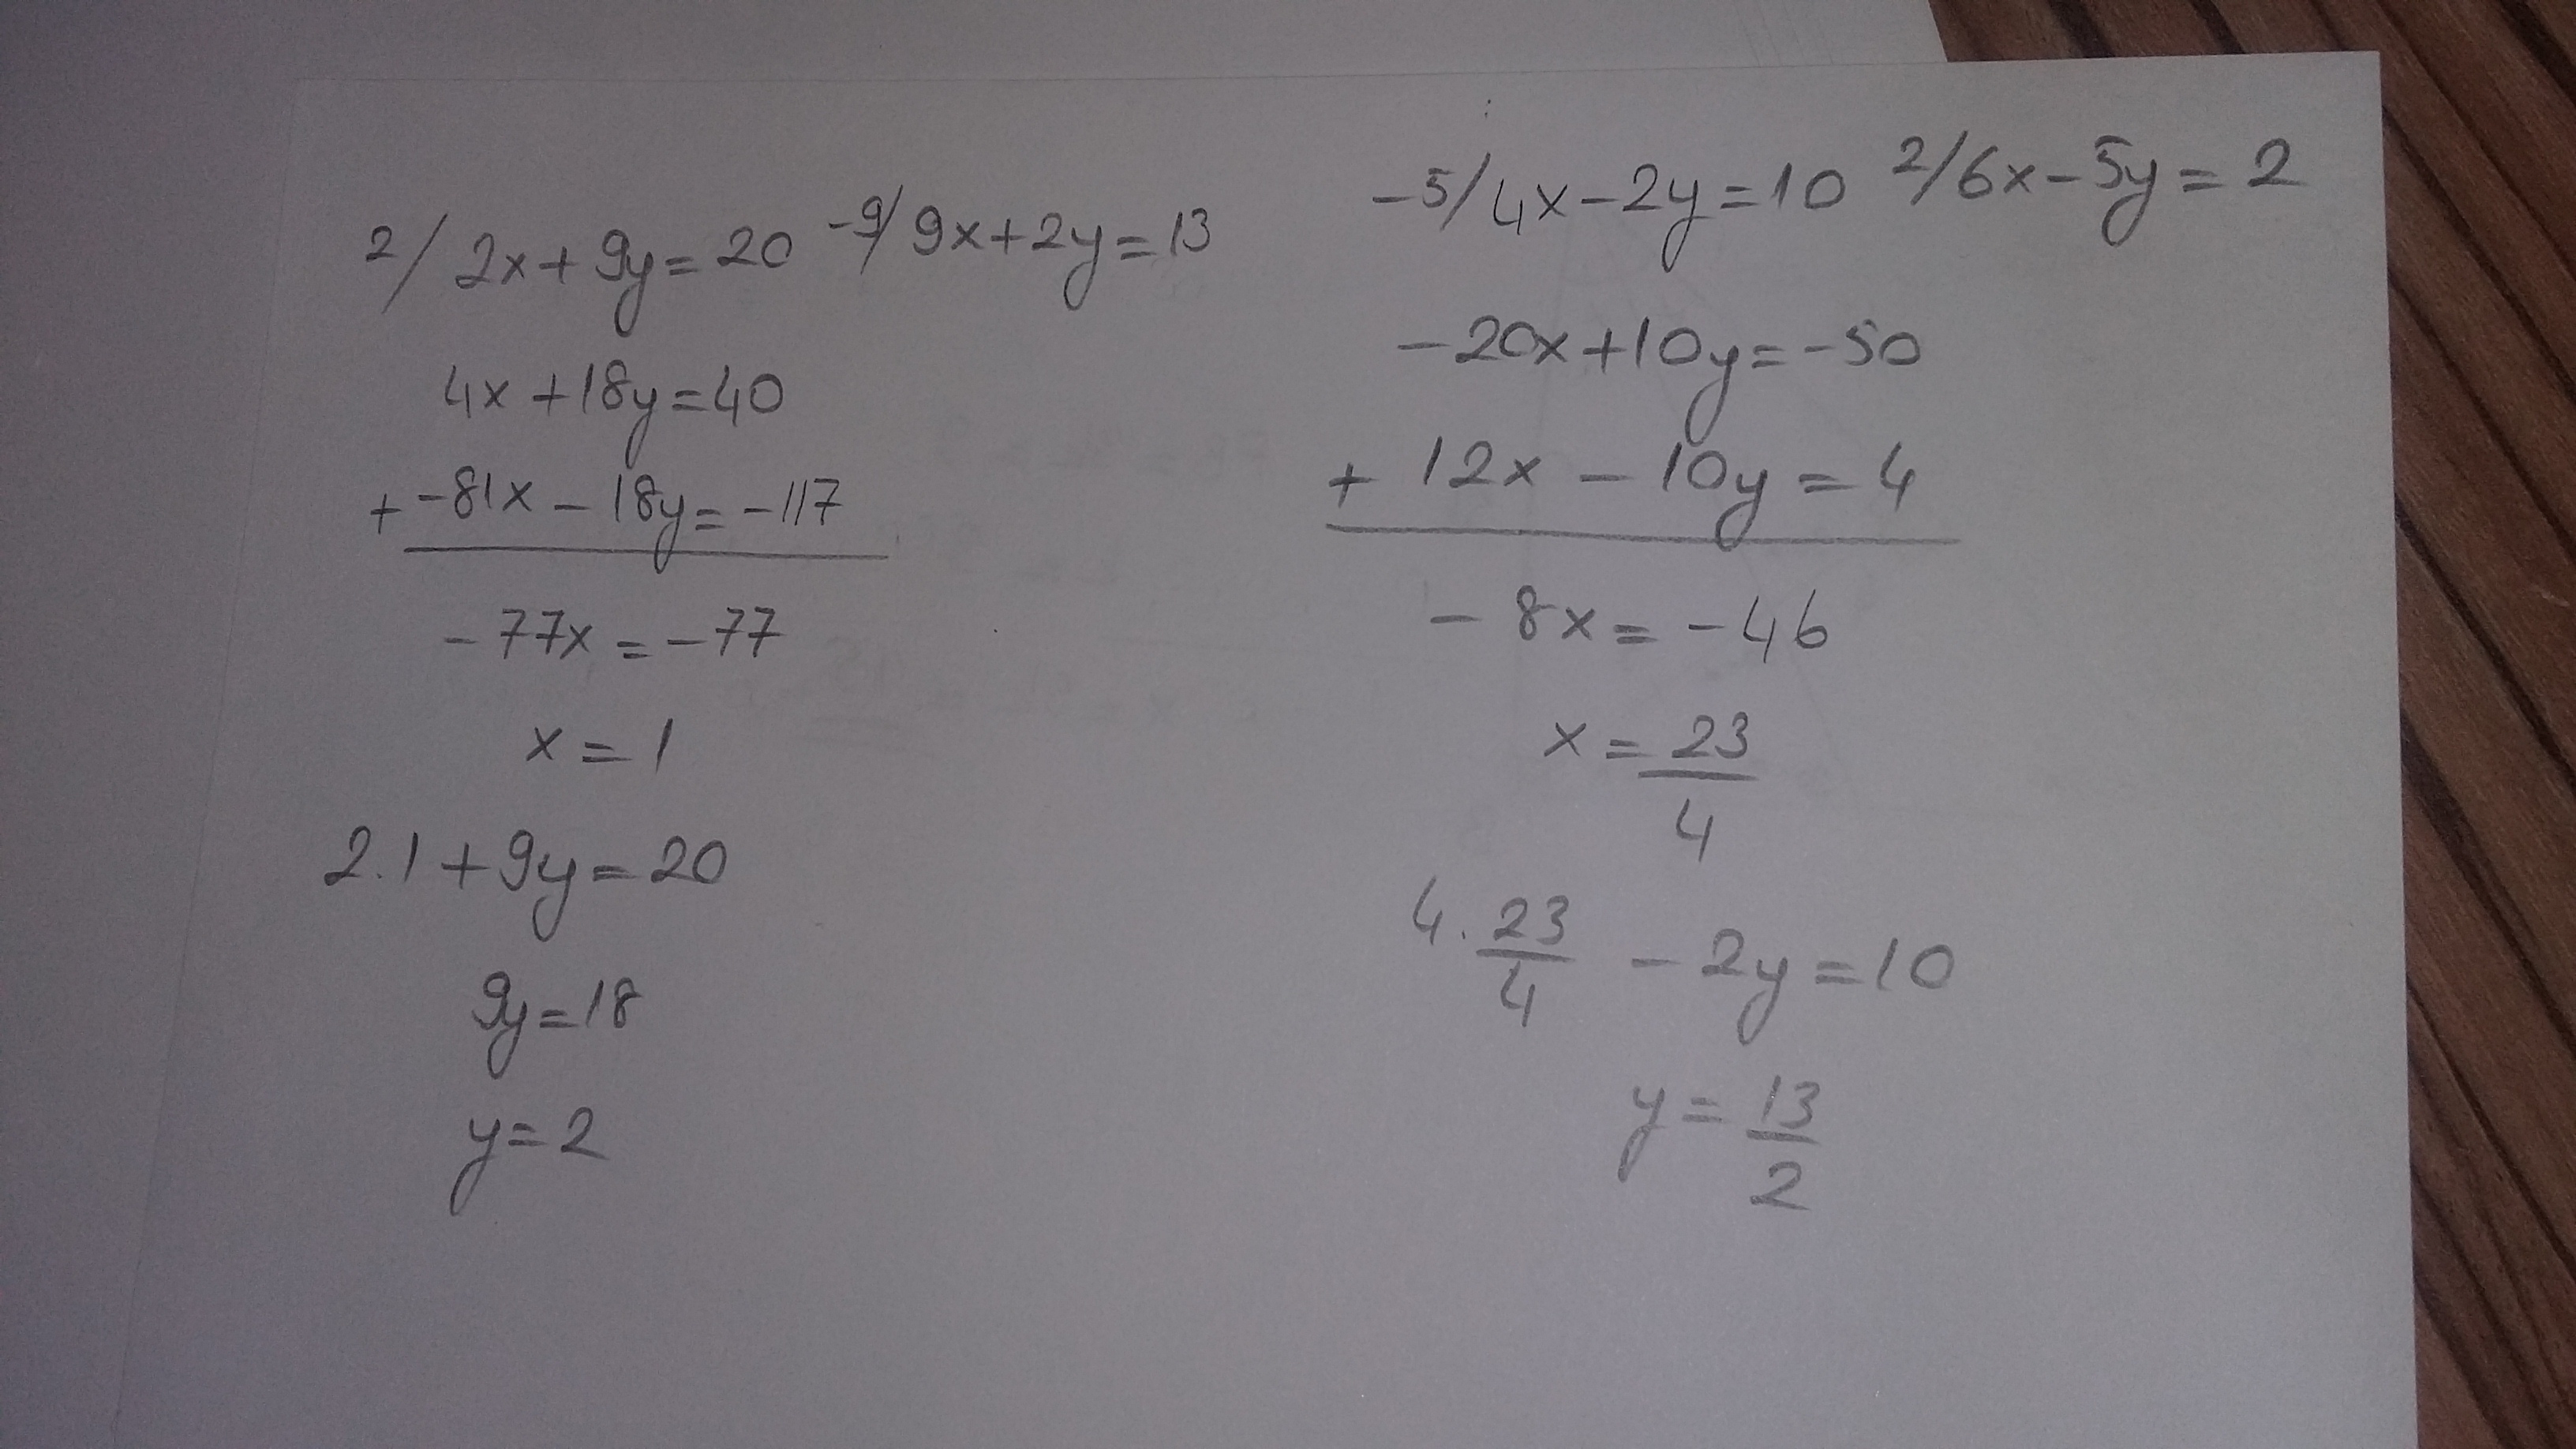 2/ 2x + 9y = 20 -9/ 9x + 2y = 13
4x + 18y = 40
+ -81x - 18y = -117
- 77x = -77
x = 1
2.1 + 9y = 20
9y = 18
y = 2
-5/ 4x - 2y = 10 2/ 6x - 5y = 2
-20x + 10y = -50
+ 12x - 10y = 4
- 8x = -46
x = 23/4
4. 23/4 - 2y = 10
y = 13/2